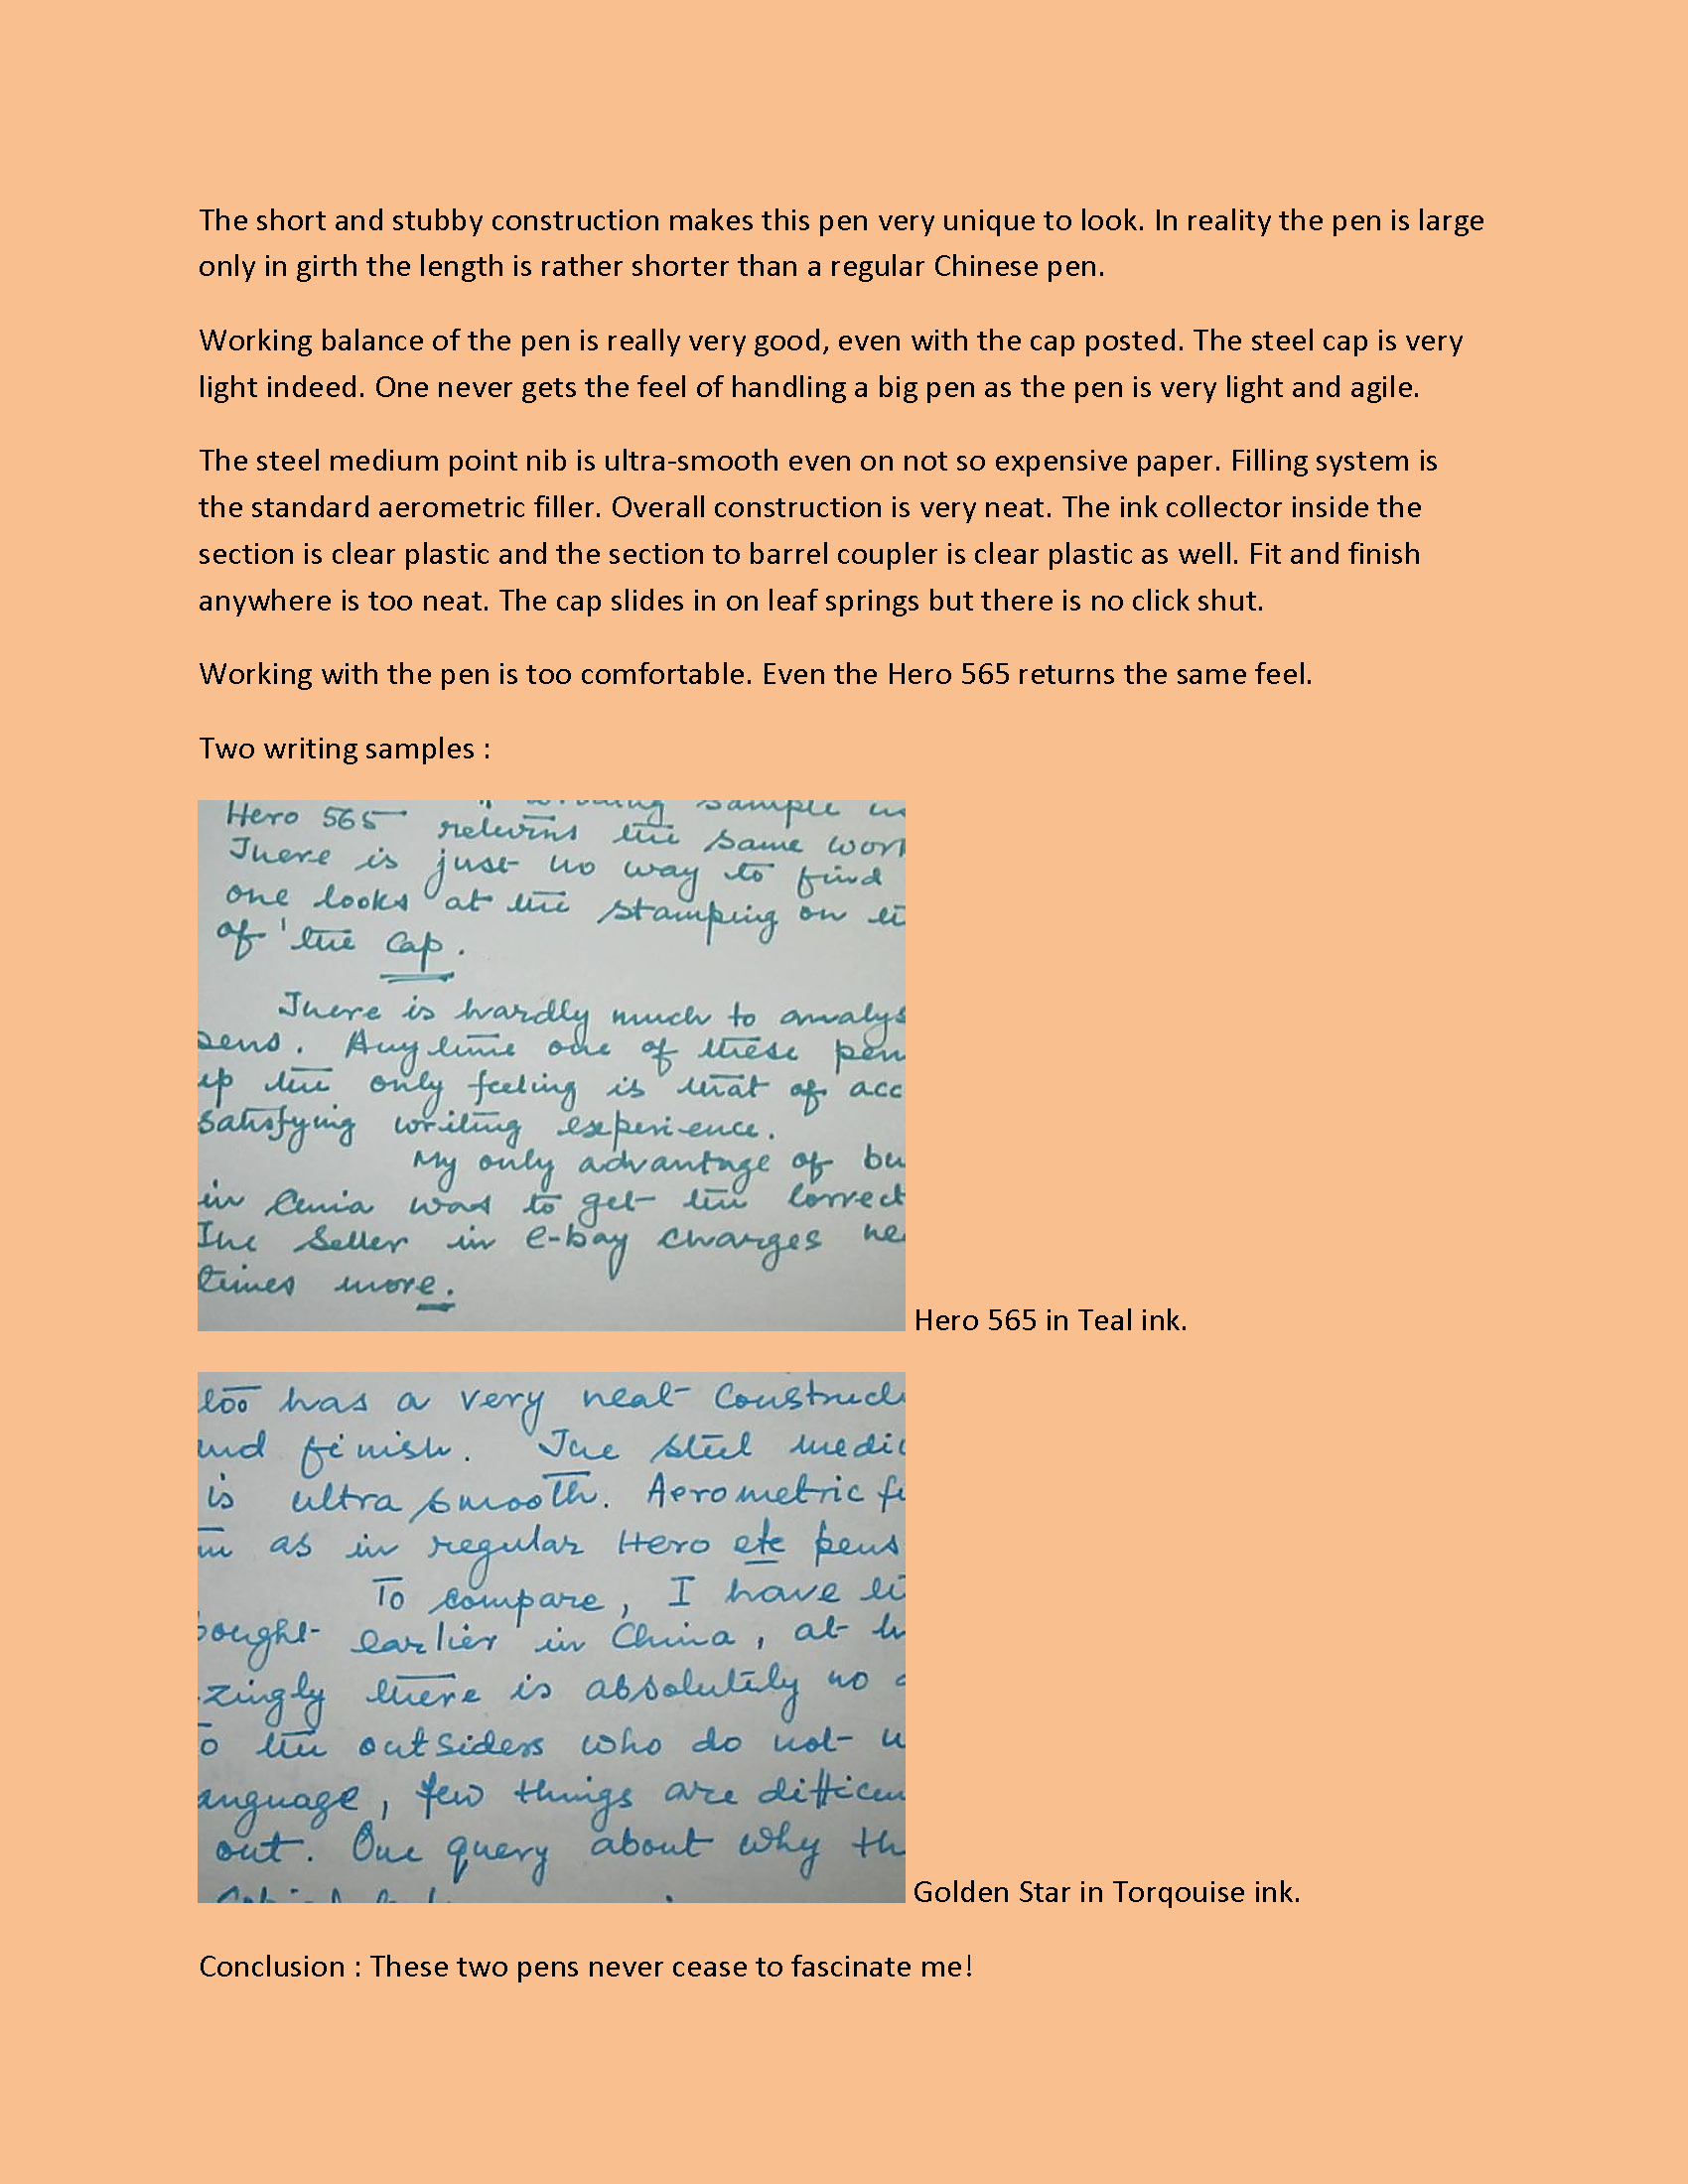 The short and stubby construction makes this pen very unique to look. In reality the pen is large
only in girth the length is rather shorter than a regular Chinese pen.
Working balance of the pen is really very good, even with the cap posted. The steel cap is very
light indeed. One never gets the feel of handling a big pen as the pen is very light and agile.
The steel medium point nib is ultra-smooth even on not so expensive paper. Filling system is
the standard aerometric filler. Overall construction is very neat. The ink collector inside the
section is clear plastic and the section to barrel coupler is clear plastic as well. Fit and finish
anywhere is too neat. The cap slides in on leaf springs but there is no click shut.
Working with the pen is too comfortable. Even the Hero 565 returns the same feel.
Two writing samples :
writing sample
Hero 565 returns the same
There is just no way to find
one looks at the stamping on
of the Cap.
There is hardly much to
. Any time one of these
the only feeling is that of
satisfying writing experience.
My only advantage of
in China was to get the correct
The Seller in e-bay charges
times more.
Hero 565 in Teal ink.
too has a very neat
finish. The steel
is ultra smooth. Aerometric
as in regular Hero etc pens
To compare, I have
earlier in China, at
there is absolutely no
the outsiders who do not
, few things are
out. One query about why
Golden Star in Torqouise ink.
Conclusion : These two pens never cease to fascinate me!